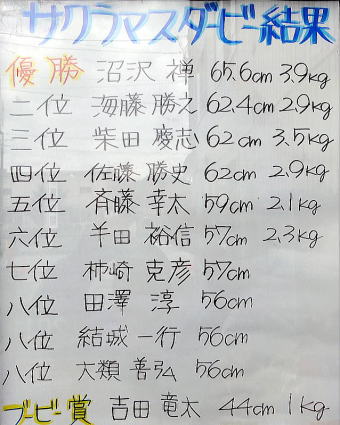 サクラマスダービー結果
優勝 沼沢 禅 65.6cm 3.9kg
二位 海藤 勝之 62.4cm 2.9kg
三位 柴田 慶志 62cm 3.5kg
四位 佐藤 勝史 62cm 2.9kg
五位 斉藤 幸太 59cm 2.1kg
六位 半田 裕信 57cm 2.3kg
七位 柿崎 克彦 57cm
八位 田澤 淳 56cm
八位 結城 一行 56cm
八位 大類 善弘 56cm
ブービー賞 吉田 竜太 44cm 1kg